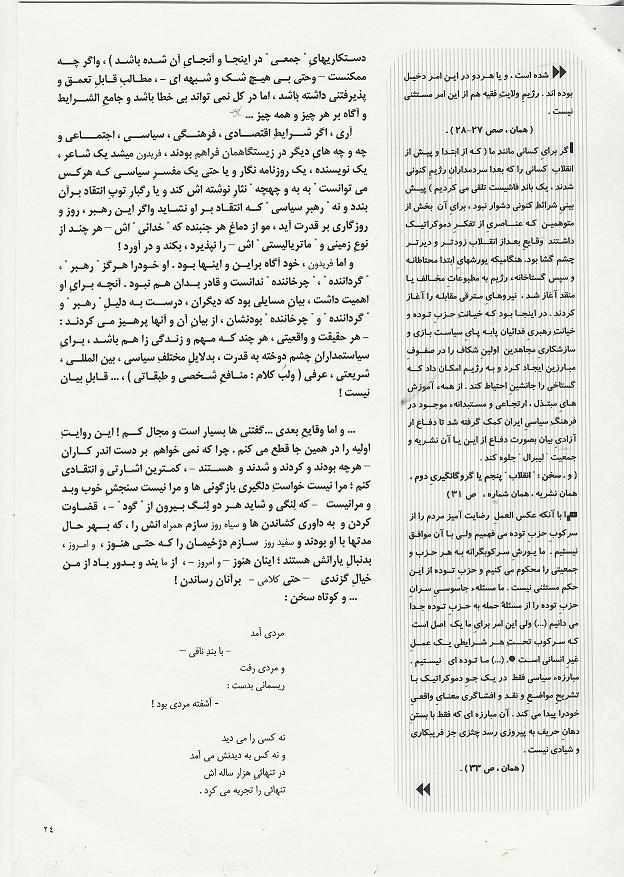 شده است . و یا هر دو در این امر دخیل
بوده اند . رژیم ولایتِ فقیه هم از این امر مستثنی
نیست .
( همان ، صص ۲۷-۲۸ ) .
اگر برای کسانی مانند ما ( که از ابتدا و پیش از
انقلاب کسانی را که بعدا سردمدارانِ رژیم کنونی
شدند ، یک باندِ فاشیست تلقی می کردیم ) پیش
بینی شرائطِ کنونی دشوار نبود ، برای آن بخش از
متوهمین که عناصری از تفکرِ دموکراتیک
داشتند وقایعِ بعد از انقلاب زودتر و دیرتر
چشم گشا بود. هنگامیکه یورشهای ابتدا محتاطانه
و سپس گستاخانه، رژیم به مطبوعاتِ مخالف یا
منقد آغاز شد . نیروهای مترقی مقابله را آغاز
کردند . در اینجا بود که خیانتِ حزبِ توده و
خیانتِ رهبریِ فدائیان پابه پای سیاست بازی و
سازشکاریِ مجاهدین اولین شکاف را در صفوفِ
مبارزین ایجاد کرد و به رژیم امکان داد که
گستاخی را جانشینِ احتیاط کند . از همهء آموزش
های مبتذل ، ارتجاعی و مستبدانهء موجود در
فرهنگِ سیاسی ایران کمک گرفته شد تا دفاع از
آزادیِ بیان بصورتِ دفاع از این یا آن نشریه و
جمعیتِ " لیبرال " جلوه کند .
( و . سخن : "انقلابِ" پنجم یا گروگانگیریِ دوم .
همان نشریه ، همان شماره ، ص ۳۱ )
با آنکه عکس العملِ رضایت آمیزِ مردم را از
سرکوبِ حزبِ توده می فهمیم ولی با آن موافق
نیستیم . ما یورشِ سرکوبگرانه به هر حزب و
جمعیتی را محکوم می کنیم و حزبِ توده از این
حکم مستثنی نیست. ما مسئلهء جاسوسیِ سرانِ
حزبِ توده را از مسئلهٔ حمله به حزبِ توده جدا
می دانیم (...) ولی این امر برای ما یک اصل است
که سرکوب تحتِ هر شرایطی یک عملِ
غیرِ انسانی است . (...) ما توده ای نیستیم .
مبارزهء سیاسی فقط در یک جوِ دموکراتیک با
تشریحِ مواضع و نقد و افشاگری معنای واقعیِ
خودرا پیدا می کند . آن مبارزه ای که فقط با بستنِ
دهانِ حریف به پیروزی رسد چیزی جز فریبکاری
و شیادی نیست .
( همان ، ص ۳۳ ) .
دستکاریهای " جمعی " در اینجا و آنجای آن شده باشد ) ، واگر چه
ممکنست – وحتی بی هیچ شک و شبهه ای - ، مطالبِ قابلِ تعمق و
پذیرفتنی داشته باشد ، اما در کل نمی تواند بی خطا باشد و جامع الشرایط
و آگاه بر هر چیز و همه چیز ...
آری ، اگر شرایطِ اقتصادی ، فرهنگی ، سیاسی ، اجتماعی و
چه و چه های دیگر در زیستگاهمان فراهم بودند ، فریدون میشد یک شاعر ،
یک نویسنده ، یک روزنامه نگار و یا حتی یک مفسرِ سیاسی که هرکس
می توانست " به به و چهچه " نثارِ نوشته اش کند و یا رگبارِ توپِ انتقاد برآن
بندد و نه " رهبرِ سیاسی" که انتقاد بر او نشاید واگر این رهبر ، روز و
روزگاری بر قدرت آید ، مو از دماغِ هر جنبنده که " خدائی " اش – هر چند از
نوع زمینی و " ماتریالیستی " اش – را نپذیرد ، بکند و در آورد !
و اما فریدون ، خود آگاه براین و اینها بود . او خودرا هرگز " رهبر " ،
" گرداننده " ، " چرخاننده " ندانست و قادر بدان هم نبود . آنچه برای او
اهمیت داشت ، بیانِ مسایلی بود که دیگران ، درست به دلیلِ " رهبر " و
" گرداننده " و " چرخاننده " بودنشان ، از بیانِ آن و آنها پرهیز می کردند :
- هر حقیقت و واقعیتی ، هر چند که مهم و زندگی زا هم باشد ، برای
سیاستمدارانِ چشم دوخته به قدرت ، بدلایلِ مختلفِ سیاسی ، بین المللی ،
شریعتی ، عرفی ( ولب کلام : منافعِ شخصی و طبقاتی ) ، ... قابلِ بیان
نیست !
... و اما وقایعِ بعدی ... گفتنی ها بسیار است و مجال کم ! این روایتِ
اولیه را در همین جا قطع می کنم . چرا که نمی خواهم بر دست اندر کاران
– هرچه بودند و کردند و شدند و هستند - ، کمترین اشارتی و انتقادی
کنم ؛ مرا نیست خواستِ دلگیری بازگونی ها و مرا نیست سنجشِ خوب وبد
و مرانیست – که لِنگی و شاید هر دو لنگ بیرون از " گود " – ، قضاوت
کردن و به داوری کشاندن ها و سیاه روز سازم همراه انش را ، که بهر حال
مدتها با او بودند و سفید روز سازم دژخیمان را که حتی هنوز ، و امروز ،
بدنبالِ یارانش هستند ؛ اینان هنوز – و امروز - ، از ما یند و بدور باد از من
خیالِ گزندی – حتی کلامی – برآنان رساندن !
... و کوتاه سخن :
مردی آمد
– با بندِ نافی –
و مردی رفت
ریسمانی بدست :
- آشفته مردی بود !
نه کسی را می دید
و نه کس به دیدنش می آمد
در تنهائیِ هزار ساله اش
تنهائی را تجربه می کرد .
۲٤